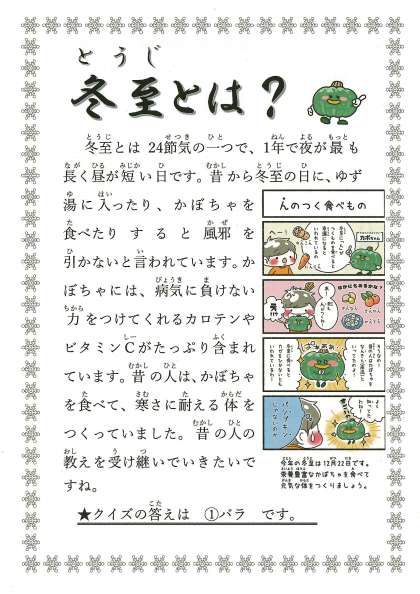 とうじ
冬至とは?
冬至とは 24節気の一つで、1年で夜が最も
長く昼が短い日です。昔から冬至の日に、ゆず
湯に入ったり、かぼちゃを
食べたりすると風邪を
引かないと言われています。か
ぼちゃには、病気に負けない
力をつけてくれるカロテンや
ビタミンCがたっぷり含まれ
ています。昔の人は、かぼちゃ
を食べて、寒さに耐える体を
つくっていました。昔の人の
教えを受け継いでいきたいで
すね。
★クイズの答えは ①バラ です。
んのつく食べもの
カボちゃん
ほかにもあるかな?
パンプキン
じゃないのか
今年の冬至は12月22日です。
栄養豊富なかぼちゃを食べて
元気な体をつくりましょう。